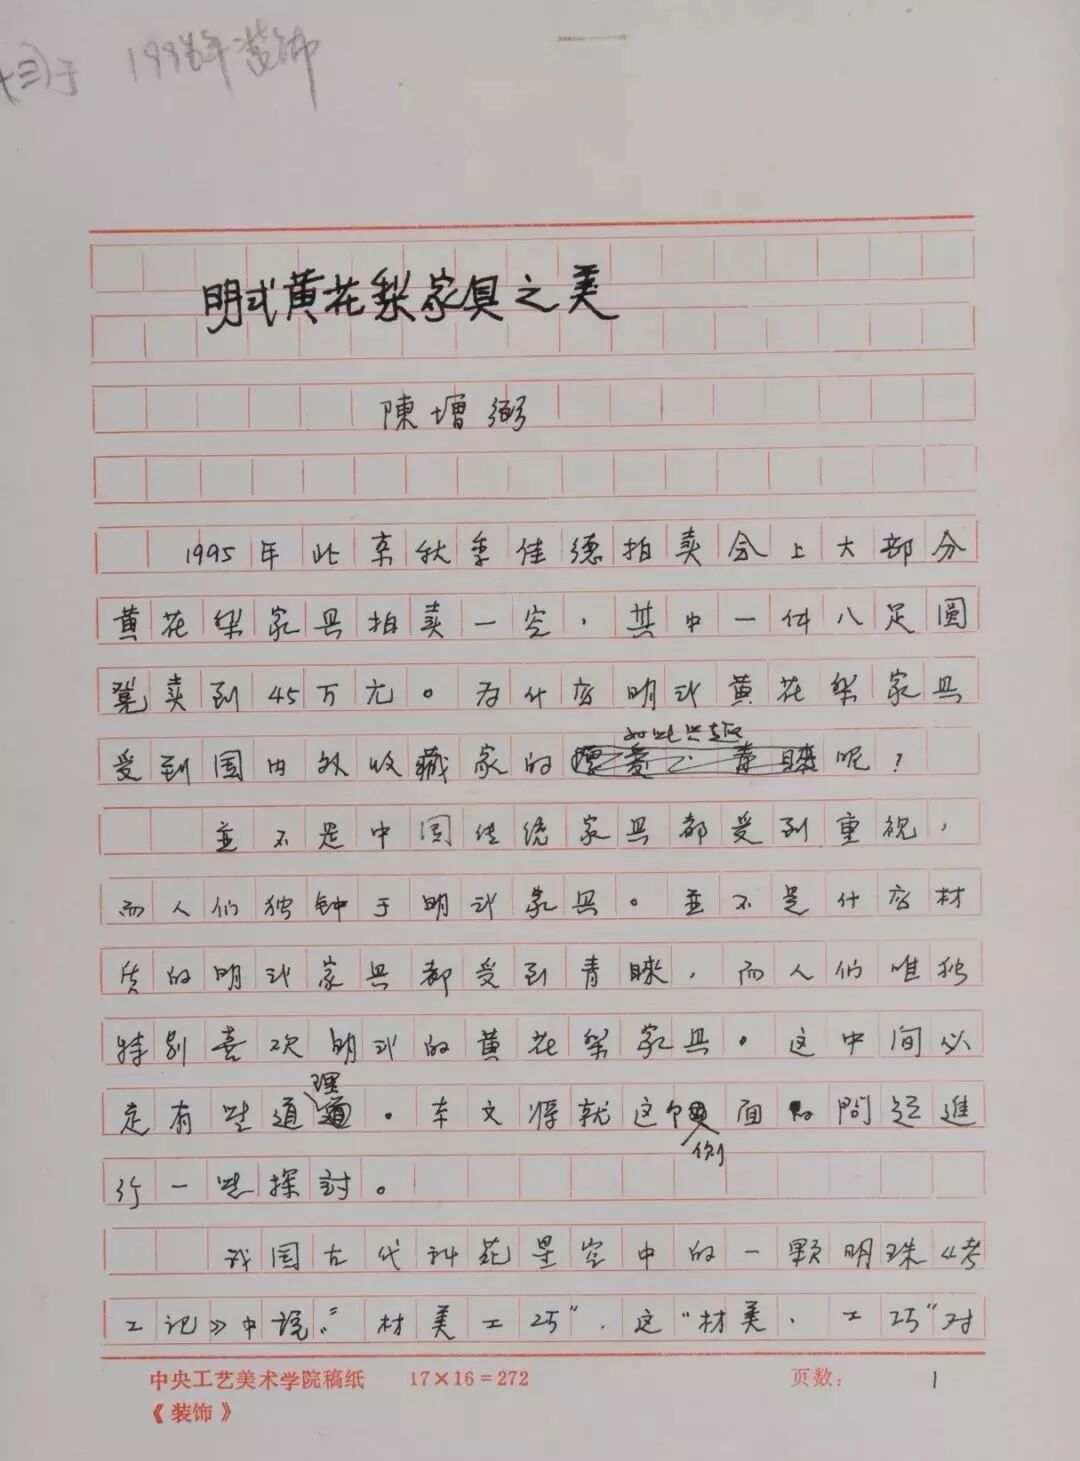 刊于 1998年装饰
明式黄花梨家具之美
陳增弼
1995年北京秋季佳德拍卖会上大部分
黄花梨家具拍卖一空，其中一件八足圆
凳卖到45万元。为什么明式黄花梨家具
如此兴趣
受到国内外收藏家的呢？
並不是中国传统家具都受到重视，
而人们独钟于明式家具。並不是什么材
质的明式家具都受到青睐，而人们唯独
特别喜欢明式的黄花梨家具。这中间必
理
定有些道。本文将就这个面的問题進
侧
行一些探討。
我国古代科苑星空中的一颗明珠《考
工记》中说："材美工巧"，这"材美、工巧"对
中央工艺美术学院稿纸 17×16=272 页数： 1
《装饰》